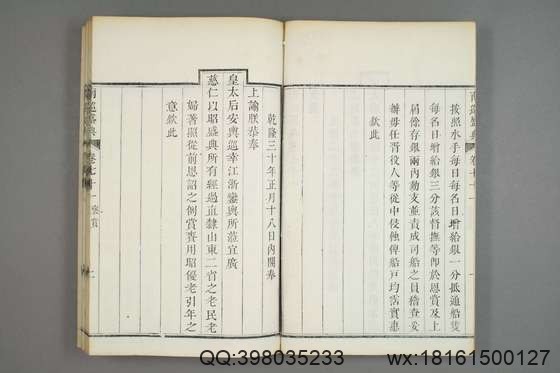 按照水手每日每名日增給銀一分抵通船隻
每名日增給銀三分該督撫等即於恩賞及上
屆餘存銀兩內動支並責成司船之員稽查妥
辦毋任胥役人等從中侵蝕俾船戶均霑實惠
欽此
南巡盛典 卷七十一
乾隆三十年正月十八日內閣奉
上諭朕恭奉
皇太后安輿巡幸江浙鑾輿所蒞宜廣
慈仁以昭盛典所有經過直隸山東二省之老民老
婦著照從前恩詔之例賞賚用昭優老引年之
意欽此
南巡盛典 卷七十一 褒賞
QQ:398035233
wx:18161500127